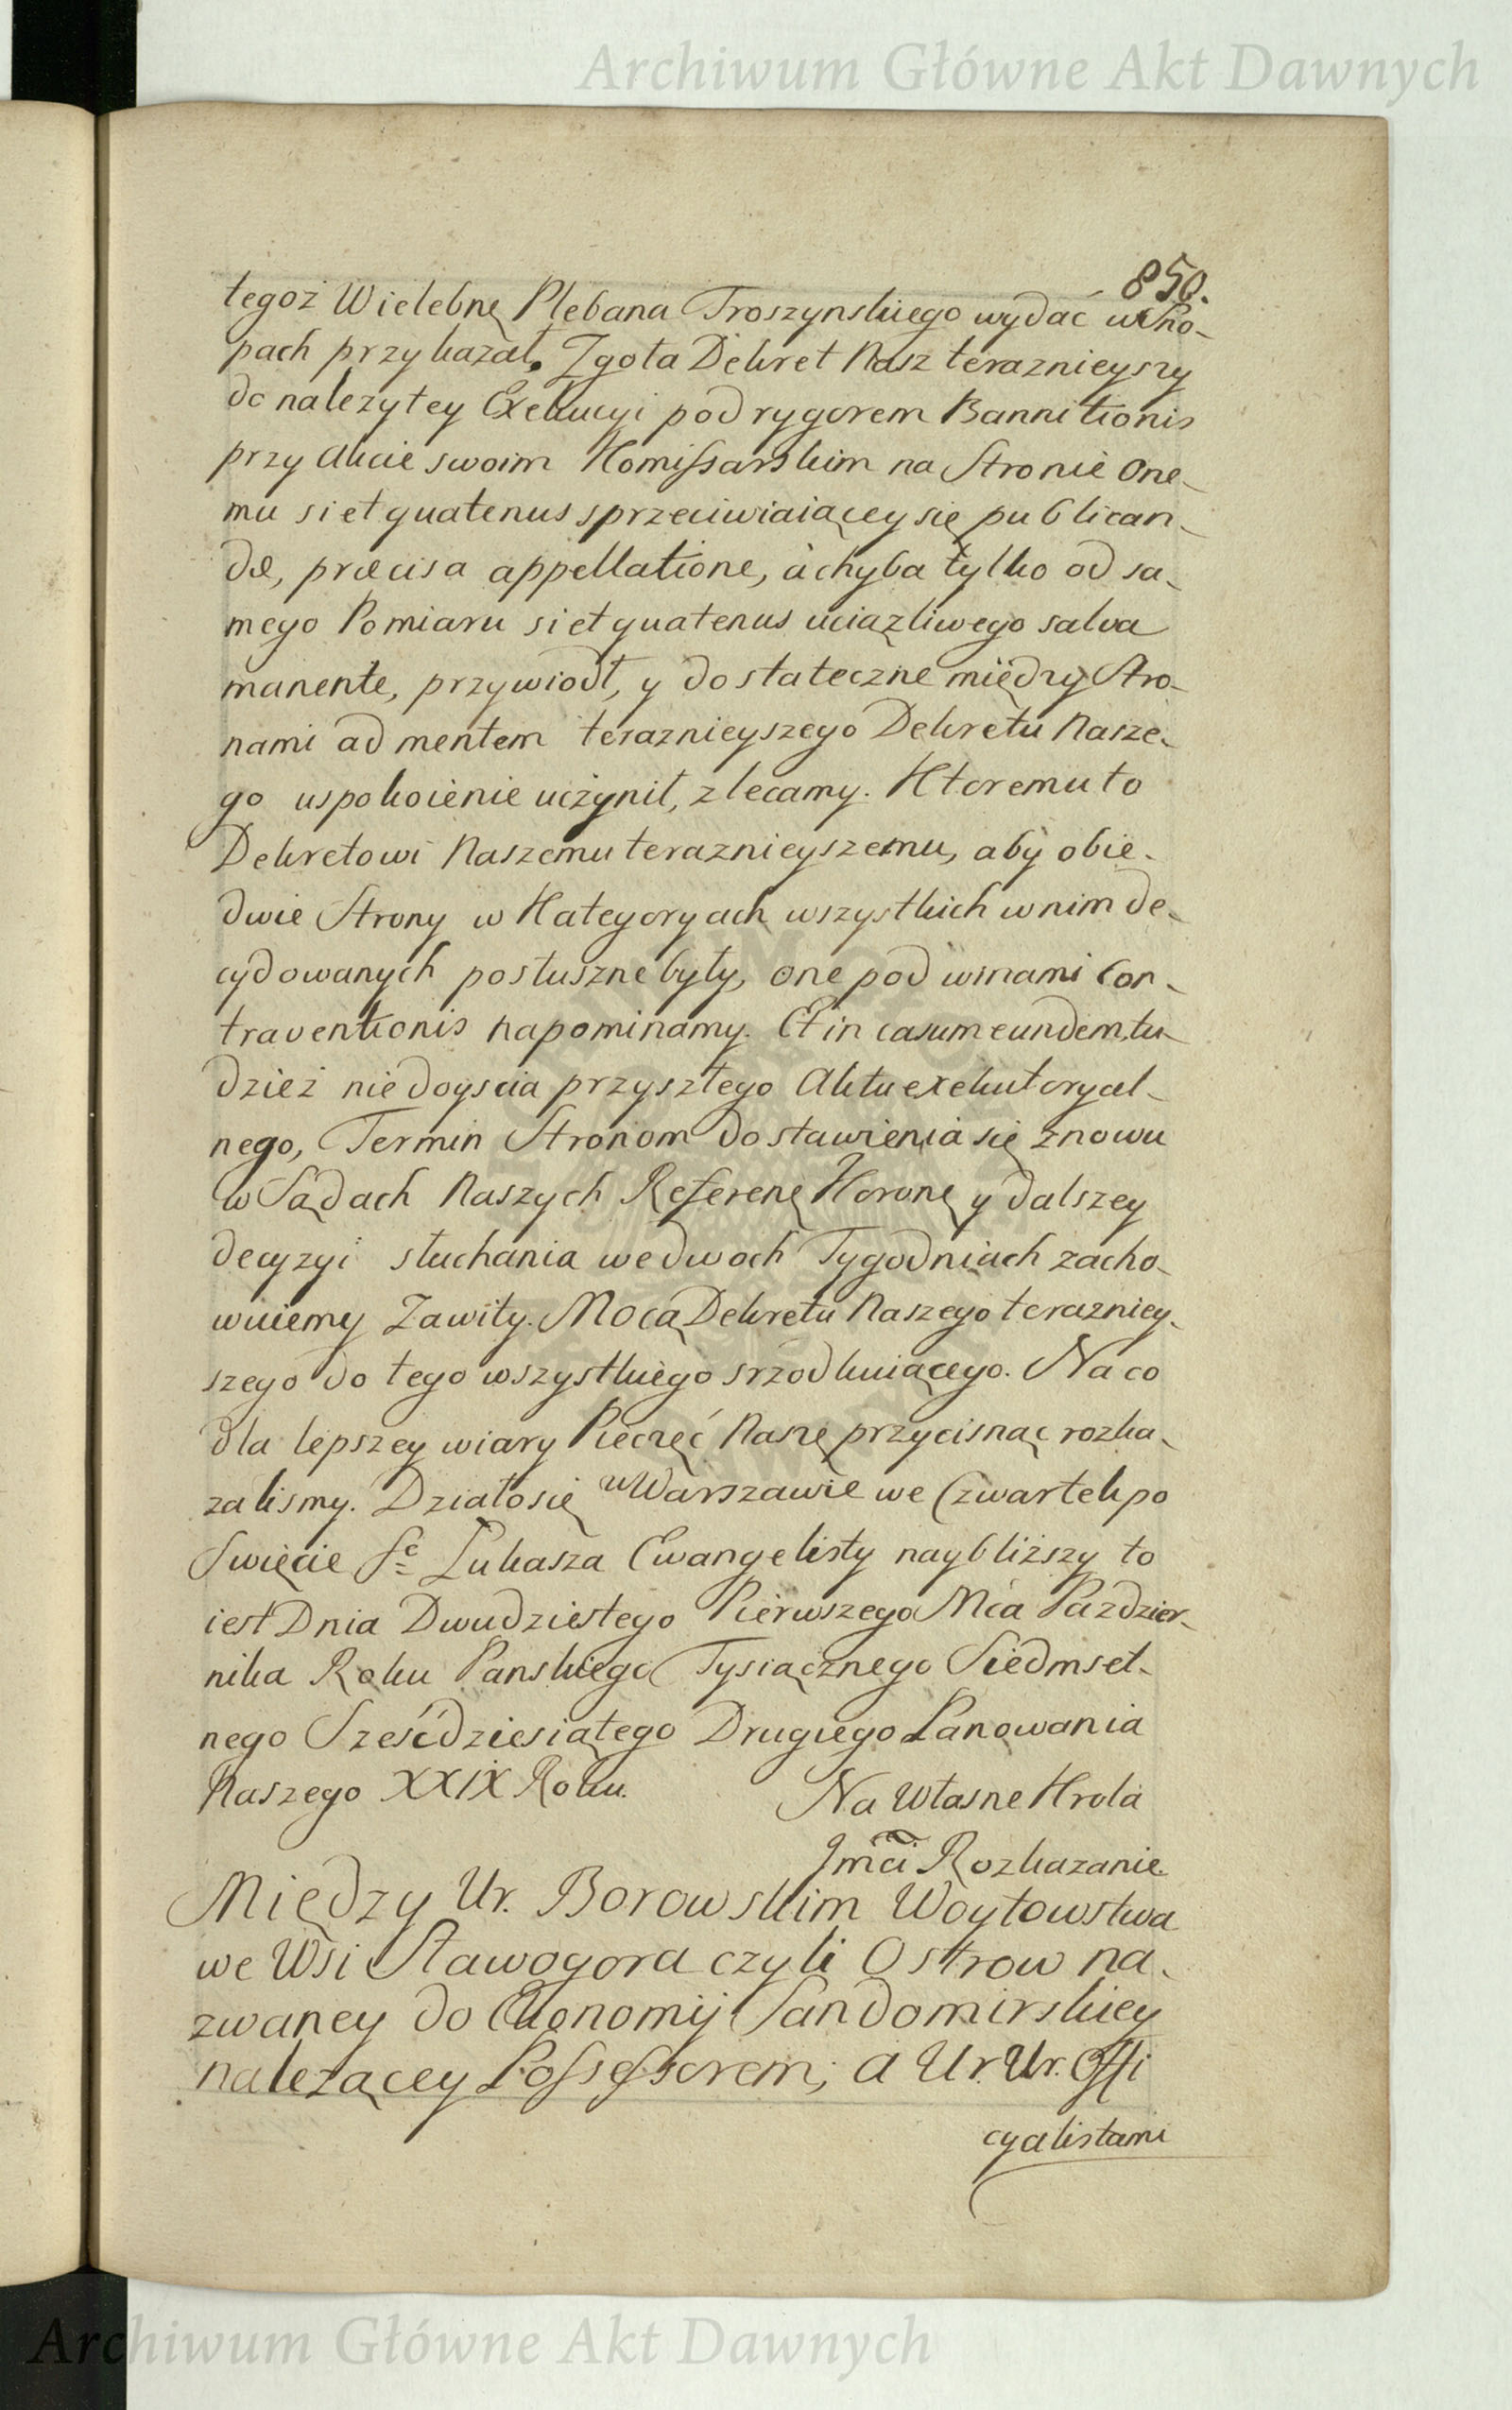 Archiwum Główne Akt Dawnych
850.
tegoż Wielebnę Plebana Troszynskiego wydać w Sno-
pach przykazał. Zgoła Dekret Nasz teraznieyszy
do nalezytey Exekucyi pod rygorem Bannitionis
przy Akcie swoim Komissarskim na Stronie One-
mu si et quatenus sprzeciwiaiącey się publican-
dæ, præcisa appellatione, à chyba tylko od sa-
mego Pomiaru si et quatenus uciązliwego salva
manente, przywiodł, y dostateczne między Stro-
nami ad mentem teraznieyszego Dekretu Nasze-
go uspokoienie uczynił, zlecamy. Ktoremu to
Dekretowi Naszemu teraznieyszemu, aby obie-
dwie Strony w Kategoryach wszystkich w nim de-
cydowanych posłuszne były, one pod winami Con-
traventionis napominamy. Et in casum eundem, tu-
dzież niedoyscia przyszłego Aktu exekutoryal-
nego, Termin Stronom do stawienia się znowu
w Sądach Naszych Referenę Koronę y dalszey
decyzyi słuchania we dwoch Tygodniach zacho-
wuiemy Zawity. Mocą Dekretu Naszego terazniey-
szego do tego wszystkiego srzodkuiącego. Na co
dla lepszey wiary Pieczęć Naszę przycisnąc rozka-
zalismy. Działo się w Warszawie we Czwartek po
Swięcie Sᵒ Łukasza Ewangelisty naybliższy to
iest Dnia Dwudziestego Pierwszego Mca Pazdzier-
nika Roku Panskiego Tysiącznego Siedmset-
nego Sześćdziesiątego Drugiego Panowania
Naszego XXIX Roku.
Na Własne Krola
Jmći Rozkazanie.
Między Ur. Borowskim Woytowstwa
we Wsi Sławogora czyli Ostrow na-
zwaney do Ekonomij Sandomirskiey
należącey Possessorem; a Ur. Ur. Offi
cyalistami
Archiwum Główne Akt Dawnych